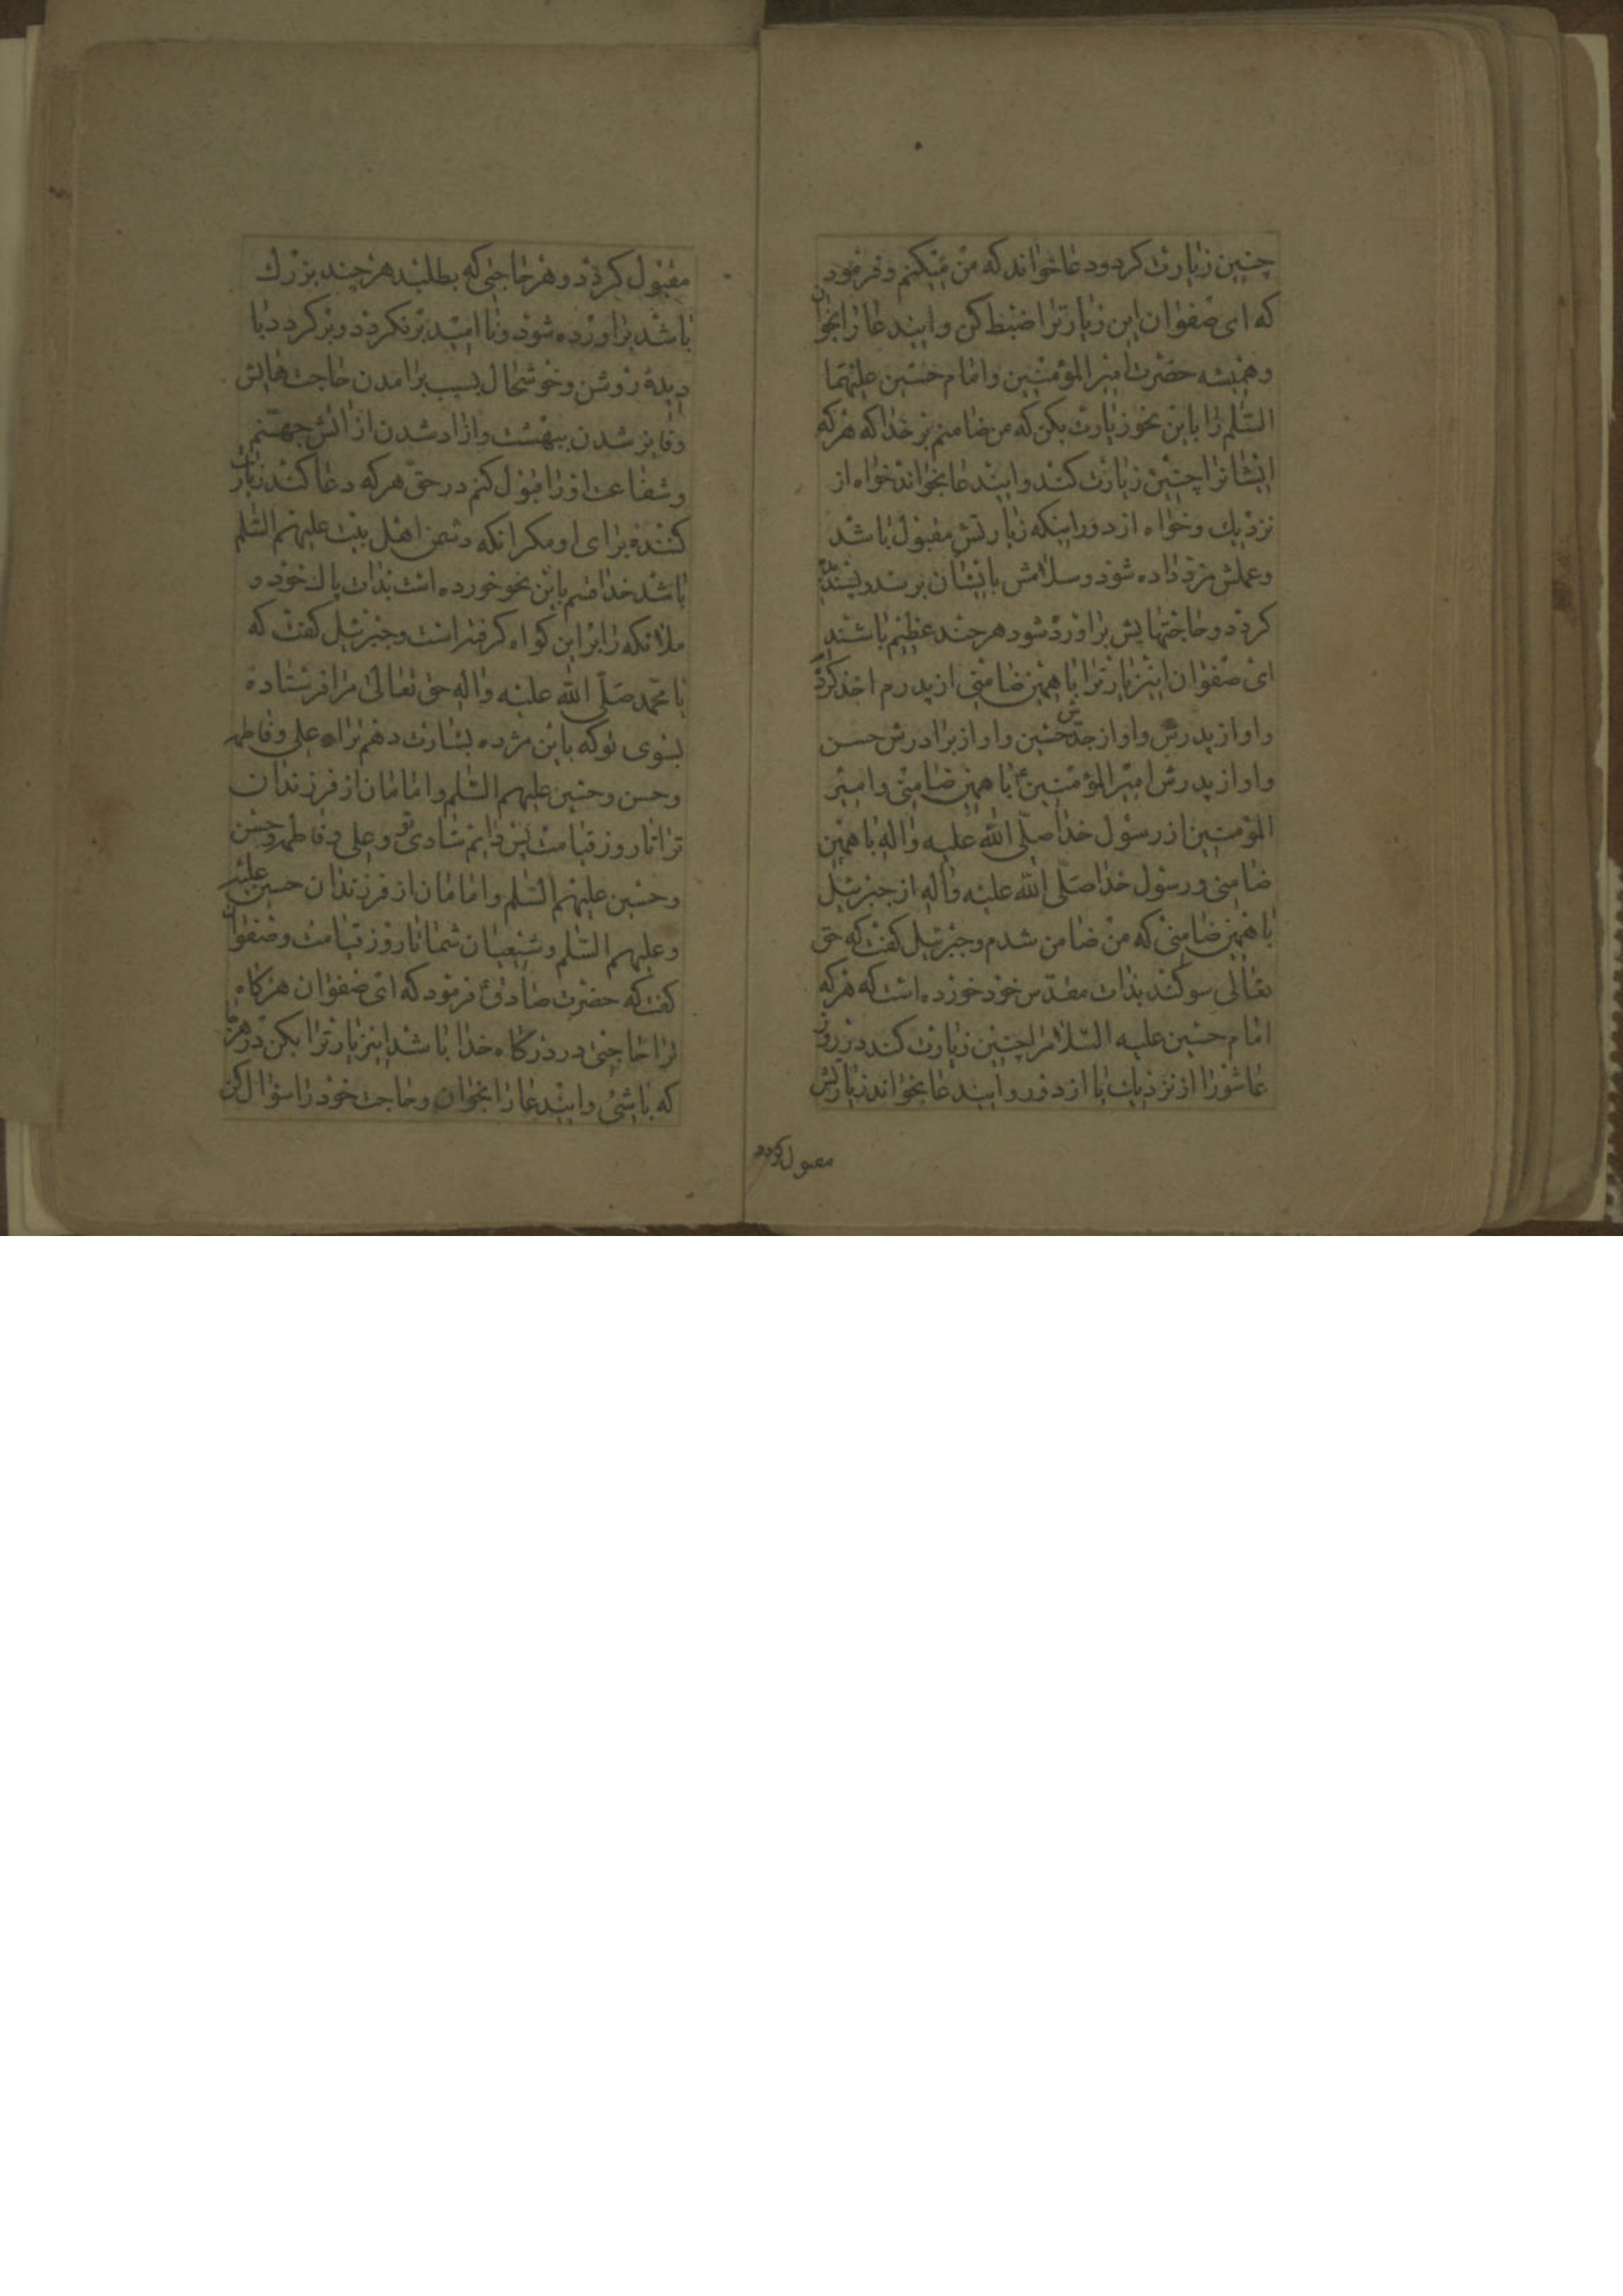 چنین زیارت کرد و دعا خواند که من میکنم و فرمود
که ای صفوان این زیارترا ضبط کن و ایندعا را بخوان
و همیشه حضرت امیر المؤمنین و امام حسین علیهما
السّلم را باین نحو زیارت بکن که من ضامنم بر خدا که هر که
ایشانرا چنین زیارت کند و ایندعا بخواند خواه از
نزدیك و خواه از دور اینکه زیارتش مقبول باشد
و عملش مزد داده شود و سلامش بایشان برسد و پسندیده
کردد و حاجتهایش براورد شود هر چند عظیم باشند
ای صفوان اینزیارترا با همین ضامنی از پدرم اخذ کردم
و او از پدرش و او از جدش حسین و او از برادرش حسن
و او از پدرش امیر المؤمنین ع با همین ضامنی و امیر
المؤمنین از رسول خدا صلّی الله علیه واله با همین
ضامنی و رسول خدا صلّی الله علیه واله از جبرئیل
با همین ضامنی که من ضامن شدم و جبرئیل کفت که حق
تعالی سوکند بذات مقدّس خود خورده است که هر که
امام حسین علیه السّلامرا چنین زیارت کند در روز
عاشورا از نزدیك یا از دور و ایندعا بخواند زیارتش
مقبول کردد
مقبول کردد و هر حاجتی که بطلبد هر چند بزرك
باشد براورده شود و نا امید برنکردد و برکردد با
دیدۀ روشن و خوشحال بسبب برامدن حاجت هایش
و فایز شدن ببهشت و ازاد شدن از اتش جهنّم
و شفاعت او را قبول کنم در حقّ هر که دعا کند زیارت
کننده برای او مکر انکه دشمن اهل بیت علیهم السّلم
باشد خدا قسم باین نحو خورده است بذات پاك خود و
ملائکه را بر این کواه کرفته است و جبرئیل کفت که
یا محمّد صلّی الله علیه واله حق تعالی مرا فرستاده
بسوی تو که باین مژده بشارت دهم ترا و علی و فاطمه
و حسن و حسین علیهم السّلم و امامان از فرزندان
ترا تا روز قیامت پس دایم شادی تو و علی و فاطمه و حسن
و حسین علیهم السّلم و امامان از فرزندان حسین علیه
و علیهم السّلم و شیعیان شما تا روز قیامت و صفوان
کفت که حضرت صادق ع فرمود که ای صفوان هر کاه
ترا حاجتی در درکاه خدا باشد اینزیارترا بکن در هر جا
که باشی و ایندعا را بخوان و حاجت خود را سؤال کن